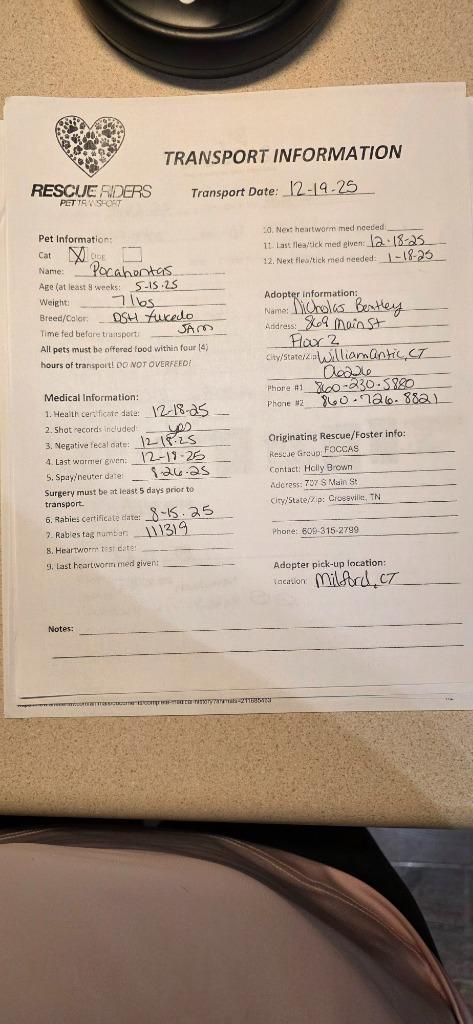 RESCUE RIDERS
PET TRANSPORT
TRANSPORT INFORMATION
Transport Date: 12-19-25
Pet Information:
Cat X Dog
Name: Pocahontas
Age (at least 8 weeks: 5-15-25
Weight: 7 lbs
Breed/Color: DSH tuxedo
Time fed before transport: 5AM
All pets must be offered food within four (4)
hours of transport! DO NOT OVERFEED!
Medical Information:
1. Health certificate date: 12-18-25
2. Shot records included: yes
3. Negative fecal date: 12-18-25
4. Last wormer given: 12-18-25
5. Spay/neuter date: 8-26-25
Surgery must be at least 5 days prior to
transport.
6. Rabies certificate date: 8-15-25
7. Rabies tag number: 111319
8. Heartworm test date:
9. Last heartworm med given:
10. Next heartworm med needed:
11. Last flea/tick med given: 12-18-25
12. Next flea/tick med needed: 1-18-25
Adopter information:
Name: Nicholas Bentley
Address: 869 Main St
Floor 2
City/State/Zip Williamantic, CT
06226
Phone #1 860-230-5880
Phone #2 860-726-8821
Originating Rescue/Foster info:
Rescue Group: FOCCAS
Contact: Holly Brown
Address: 707 S Main St
City/State/Zip: Crossville, TN
Phone: 609-315-2799
Adopter pick-up location:
Location: Milford, CT
Notes: